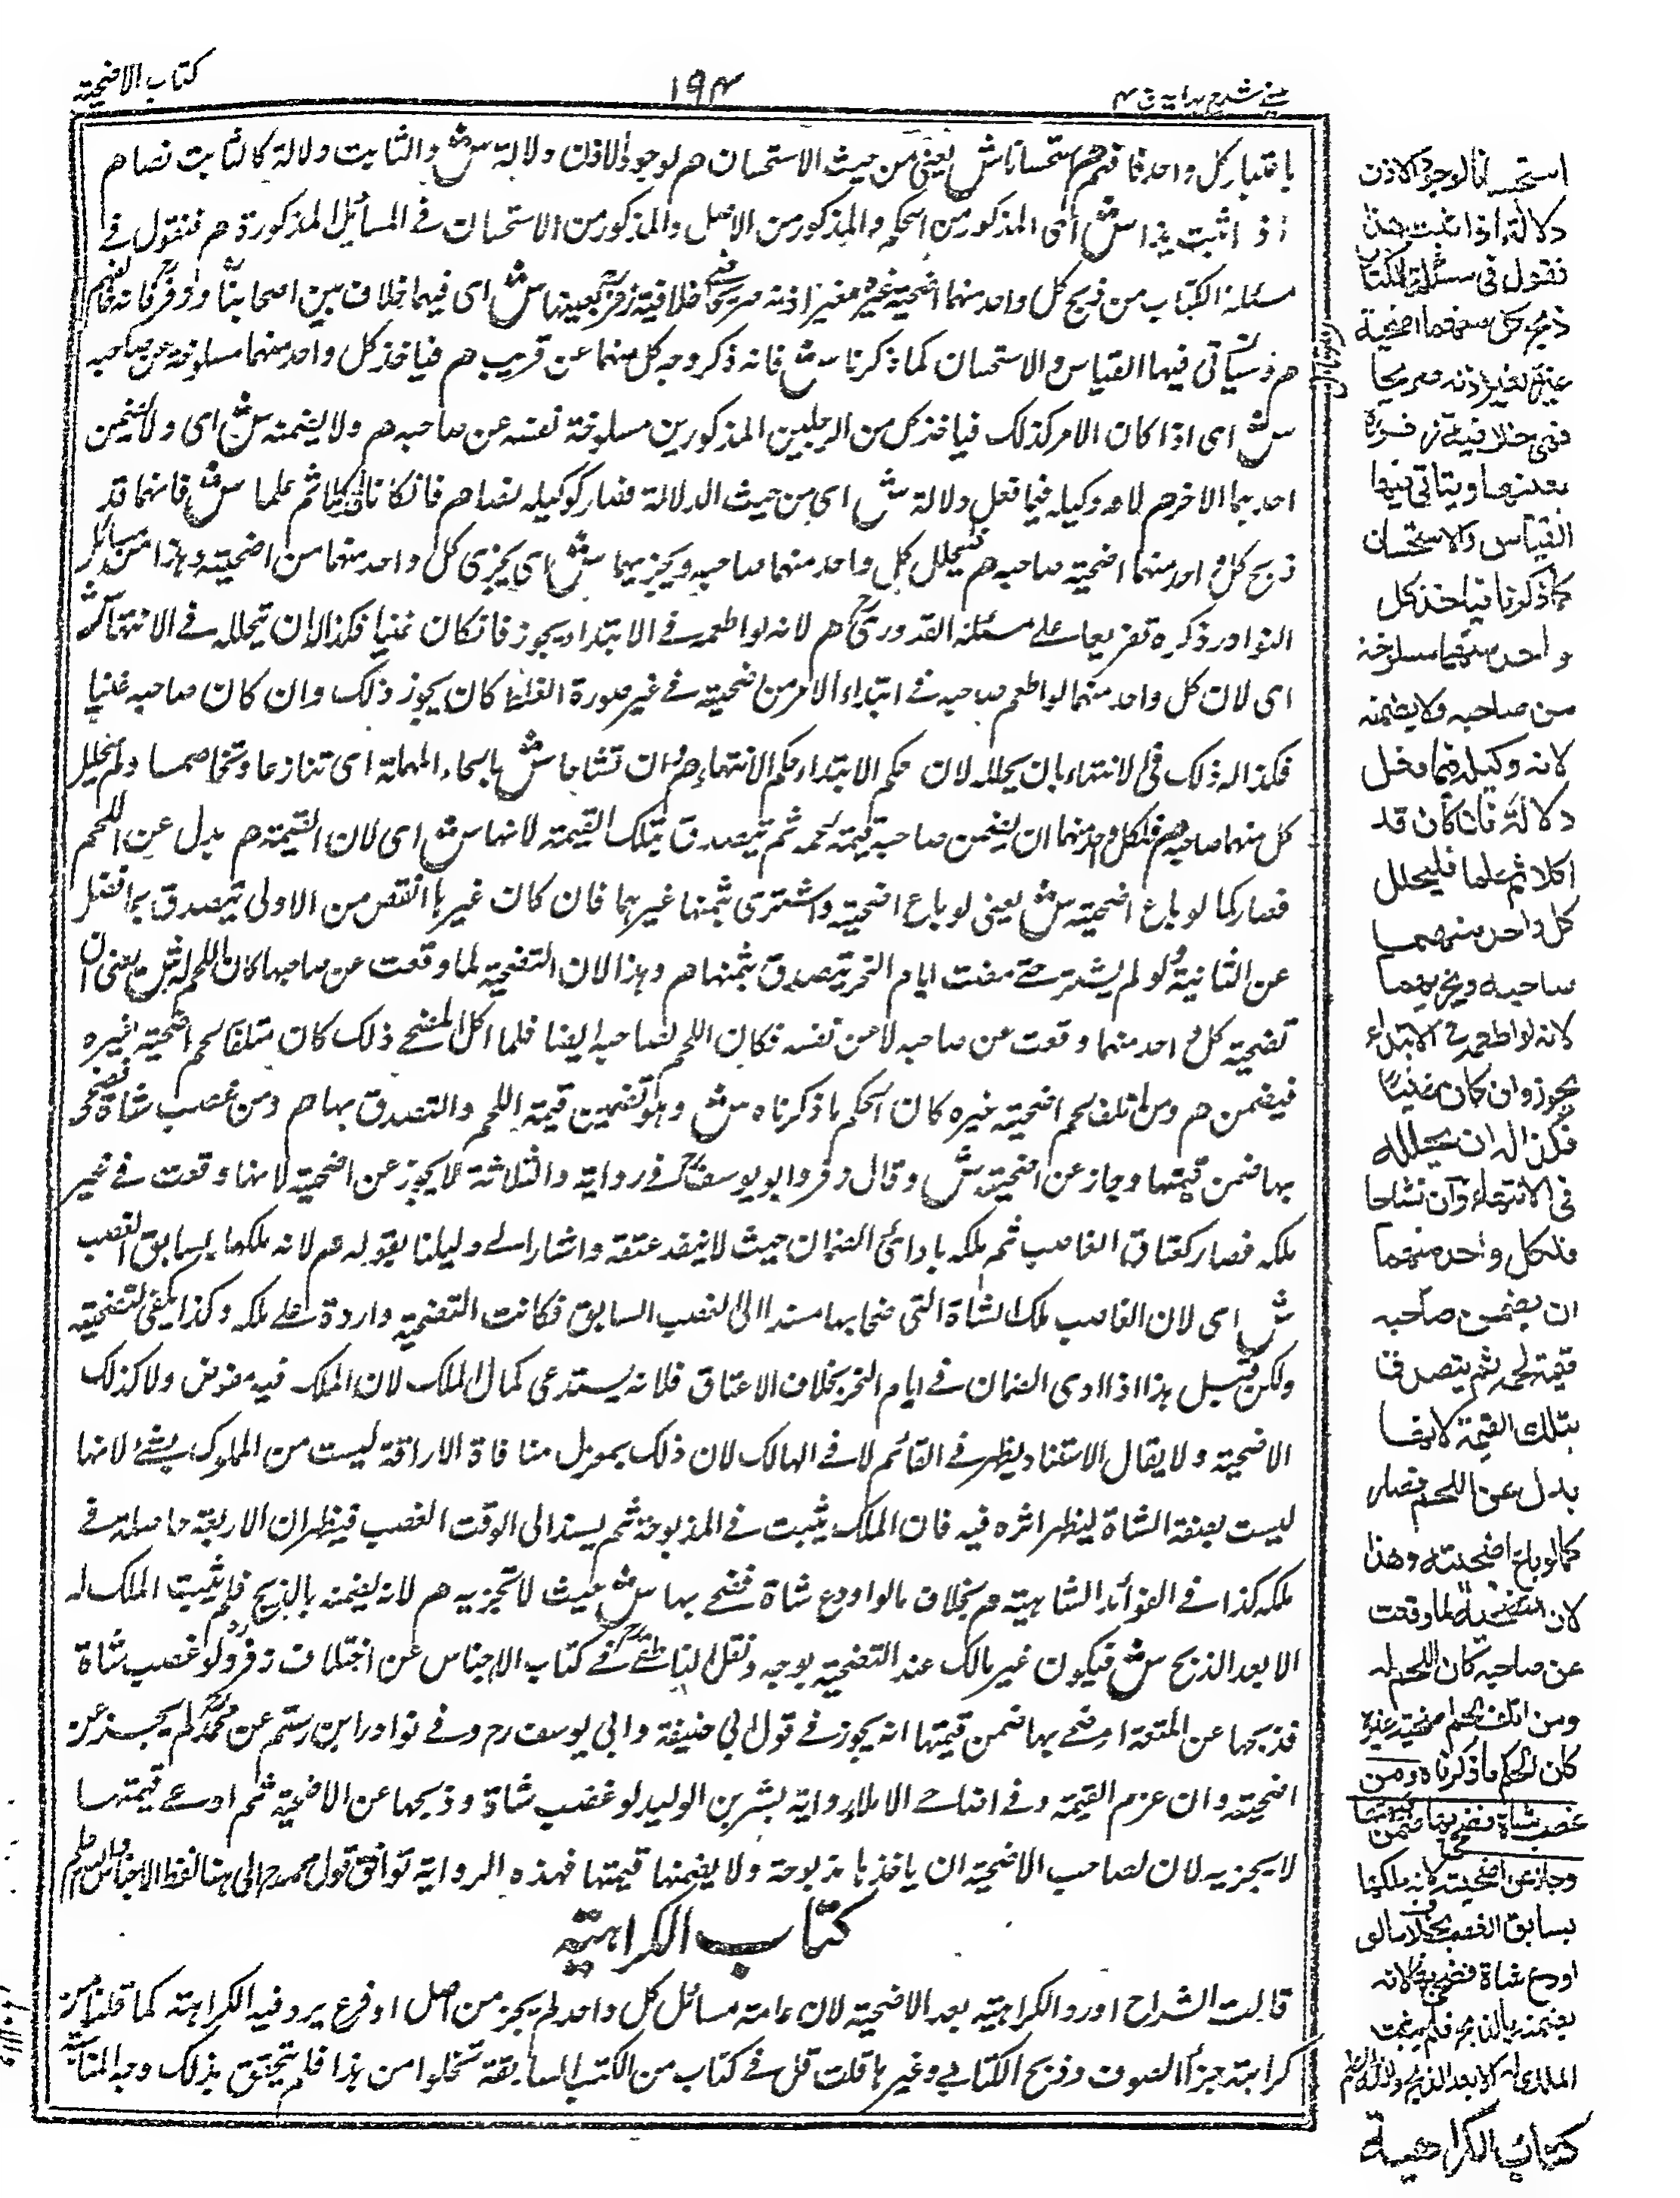 عيني شرح هداية ج ٤
١٩٤
كتاب الاضحية
باعتبار كل واحد فافهم هم استحسانا ش يعني من حيث الاستحسان هم لوجود الاذن دلالة ش والثابت دلالة كالثابت نصا هم
اذا ثبت هذا ش اى المذكور من الحكم والمذكور من الاصل والمذكور من الاستحسان في المسائل المذكورة هم فنقول في
مسئلة الكتاب من ذبح كل واحد منهما اضحية غيره بغير اذنه صريحا فهي خلافية زفر بعينها ش اى فيها خلاف بين اصحابنا وزفر فانه
هم ويتاتى فيها القياس والاستحسان كما ذكرنا ش فانه ذكر وجه كل منهما عن قريب هم فياخذ كل واحد منهما مسلوخة عن صاحبه
ش اى اذا كان الامر كذلك فياخذ كل من الرجلين المذكورين مسلوخة نفسه عن صاحبه هم ولا يضمنه ش اى ولا يضمن
احدهما الاخر هم لانه وكيله فيما فعل دلالة ش اى من حيث الدلالة فصار كوكيله نصا هم فان كانا قد اكلا ثم علما ش فانهما قد
ذبح كل واحد منهما اضحية صاحبه هم فليحلل كل واحد منهما صاحبه ويجزيهما ش اى يجزى كل واحد منهما من اضحيته وهذا من مسائل
النوادر ذكره تفريعا على مسئلة القدورى هم لانه لو اطعمه في الابتداء يجوز فان كان غنيا فكذا له ان يحلله في الانتهاء ش
اى لان كل واحد منهما لو اطعم صاحبه في ابتداء الامر من اضحيته في غير صورة الغلط كان يجوز ذلك وان كان صاحبه غنيا
فكذا له ذلك في الانتهاء بان يحلله لان حكم الابتداء حكم الانتهاء هم وان تشاحا ش بالحاء المهملة اى تنازعا وتخاصما ولم يحلل
كل منهما صاحبه هم فلكل واحد منهما ان يضمن صاحبه قيمة لحمه ثم يتصدق بتلك القيمة لانها ش اى لان القيمة هم بدل عن اللحم
فصار كما لو باع اضحيته ش يعني لو باع اضحيته واشترى بثمنها غيرها فان كان غيرها انقص من الاولى يتصدق بما فضل
عن الثانية ولو لم يشتر حتى مضت ايام النحر يتصدق بثمنها هم وهذا لان التضحية لما وقعت عن صاحبها كان اللحم له ش يعني ان
تضحية كل واحد منهما وقعت عن صاحبه لا من نفسه فكان اللحم لصاحبه ايضا فلما اكل المضحي ذلك كان متلفا لحم اضحية غيره
فيضمن هم ومن اتلف لحم اضحية غيره كان الحكم ما ذكرناه ش وهو تضمين قيمة اللحم والتصدق بها هم ومن غصب شاة فضحى
بها ضمن قيمتها وجاز عن اضحيته ش وقال زفر وابو يوسف في رواية والثلاثة لا يجوز عن اضحيته لانها وقعت في غير
ملكه فصار كعتاق الغاصب ثم ملكه باداء الضمان حيث لا ينفذ عتقه واشار الى دليلنا بقوله هم لانه ملكها بسابق الغصب
ش اى لان الغاصب ملك الشاة التي ضحا بها مستندا الى الغصب السابق فكانت التضحية واردة على ملكه وكذا يكفي لتضحيته
ولكن قيل هذا اذا ادى الضمان في ايام النحر بخلاف الاعتاق فلانه يستدعى كمال الملك لان الملك فيه مفوض ولا كذلك
الاضحية ولا يقال الاستناد يظهر في القائم لا في الهالك لان ذلك بمعزل منا فاة الاراقة ليست من المملوك بشئ لانها
ليست بصفة الشاة ليظهر اثره فيه فان الملك يثبت في المذبوحة ثم يستند الى الوقت الغصب فيظهر ان الاراقة حاصلة في
ملكه كذا في الفوائد الشاهية هم بخلاف ما لو اودع شاة فضحى بها ش حيث لا تجزيه هم لانه يضمنه بالذبح فلم يثبت الملك له
الا بعد الذبح ش فيكون غير مالك عند التضحية بوجه ونقل الناطفى في كتاب الاجناس عن اختلاف زفر ولو غصب شاة
فذبحها عن المتعة او ضحى بها ضمن قيمتها انه يجوز في قول ابي حنيفة وابي يوسف رح وفي نوادر ابن رستم عن محمد لم يجز عن
اضحيته وان غرم القيمة وفي اضاحى الاملاء رواية بشر بن الوليد لو غصب شاة وذبحها عن الاضحية ثم ادى قيمتها
لا يجزيه لان لصاحب الاضحية ان ياخذها مذبوحة ولا يضمنها قيمتها فهذه الرواية توافق قول محمد الى هنا لفظ الاجناس
كتاب الكراهية
قالت الشراح اورد الكراهية بعد الاضحية لان عامة مسائل كل واحد لم يجز من اصل او فرع يرد فيه الكراهة كما قلنا من
كراهة جز الصوف وذبح الكتابي وغيرها قلت قل في كتاب من الكتب السابقة تخلوا من هذا فلم يتحقق بذلك وجه المناسبة
استحسانا لوجود الاذن
دلالة اذا ثبت هذا
فنقول في مسئلة الكتاب
ذبح كل منهما اضحية
غيره بغير اذنه صريحا
فهي خلافية زفر
بعينها ويتاتى فيها
القياس والاستحسان
كما ذكرنا فياخذ كل
واحد منهما مسلوخة
من صاحبه ولا يضمنه
لانه وكيله فيما فعل
دلالة فان كان قد
اكلا ثم علما فليحلل
كل واحد منهما
صاحبه ويجزيهما
لانه لو اطعمه في الابتداء
يجوز وان كان غنيا
فكذا له ان يحلله
في الانتهاء وان تشاحا
فلكل واحد منهما
ان يضمن صاحبه
قيمة لحمه ثم يتصدق
بتلك القيمة لانها
بدل عن اللحم فصار
كما لو باع اضحيته وهذا
لان التضحية لما وقعت
عن صاحبه كان اللحم له
ومن اتلف لحم اضحية غيره
كان الحكم ما ذكرناه ومن
غصب شاة فضحى بها ضمن قيمتها
وجاز عن اضحيته لانه ملكها
بسابق الغصب بخلاف ما لو
اودع شاة فضحى بها لانه
يضمنه بالذبح فلم يثبت
الملك له الا بعد الذبح
كتاب الكراهية